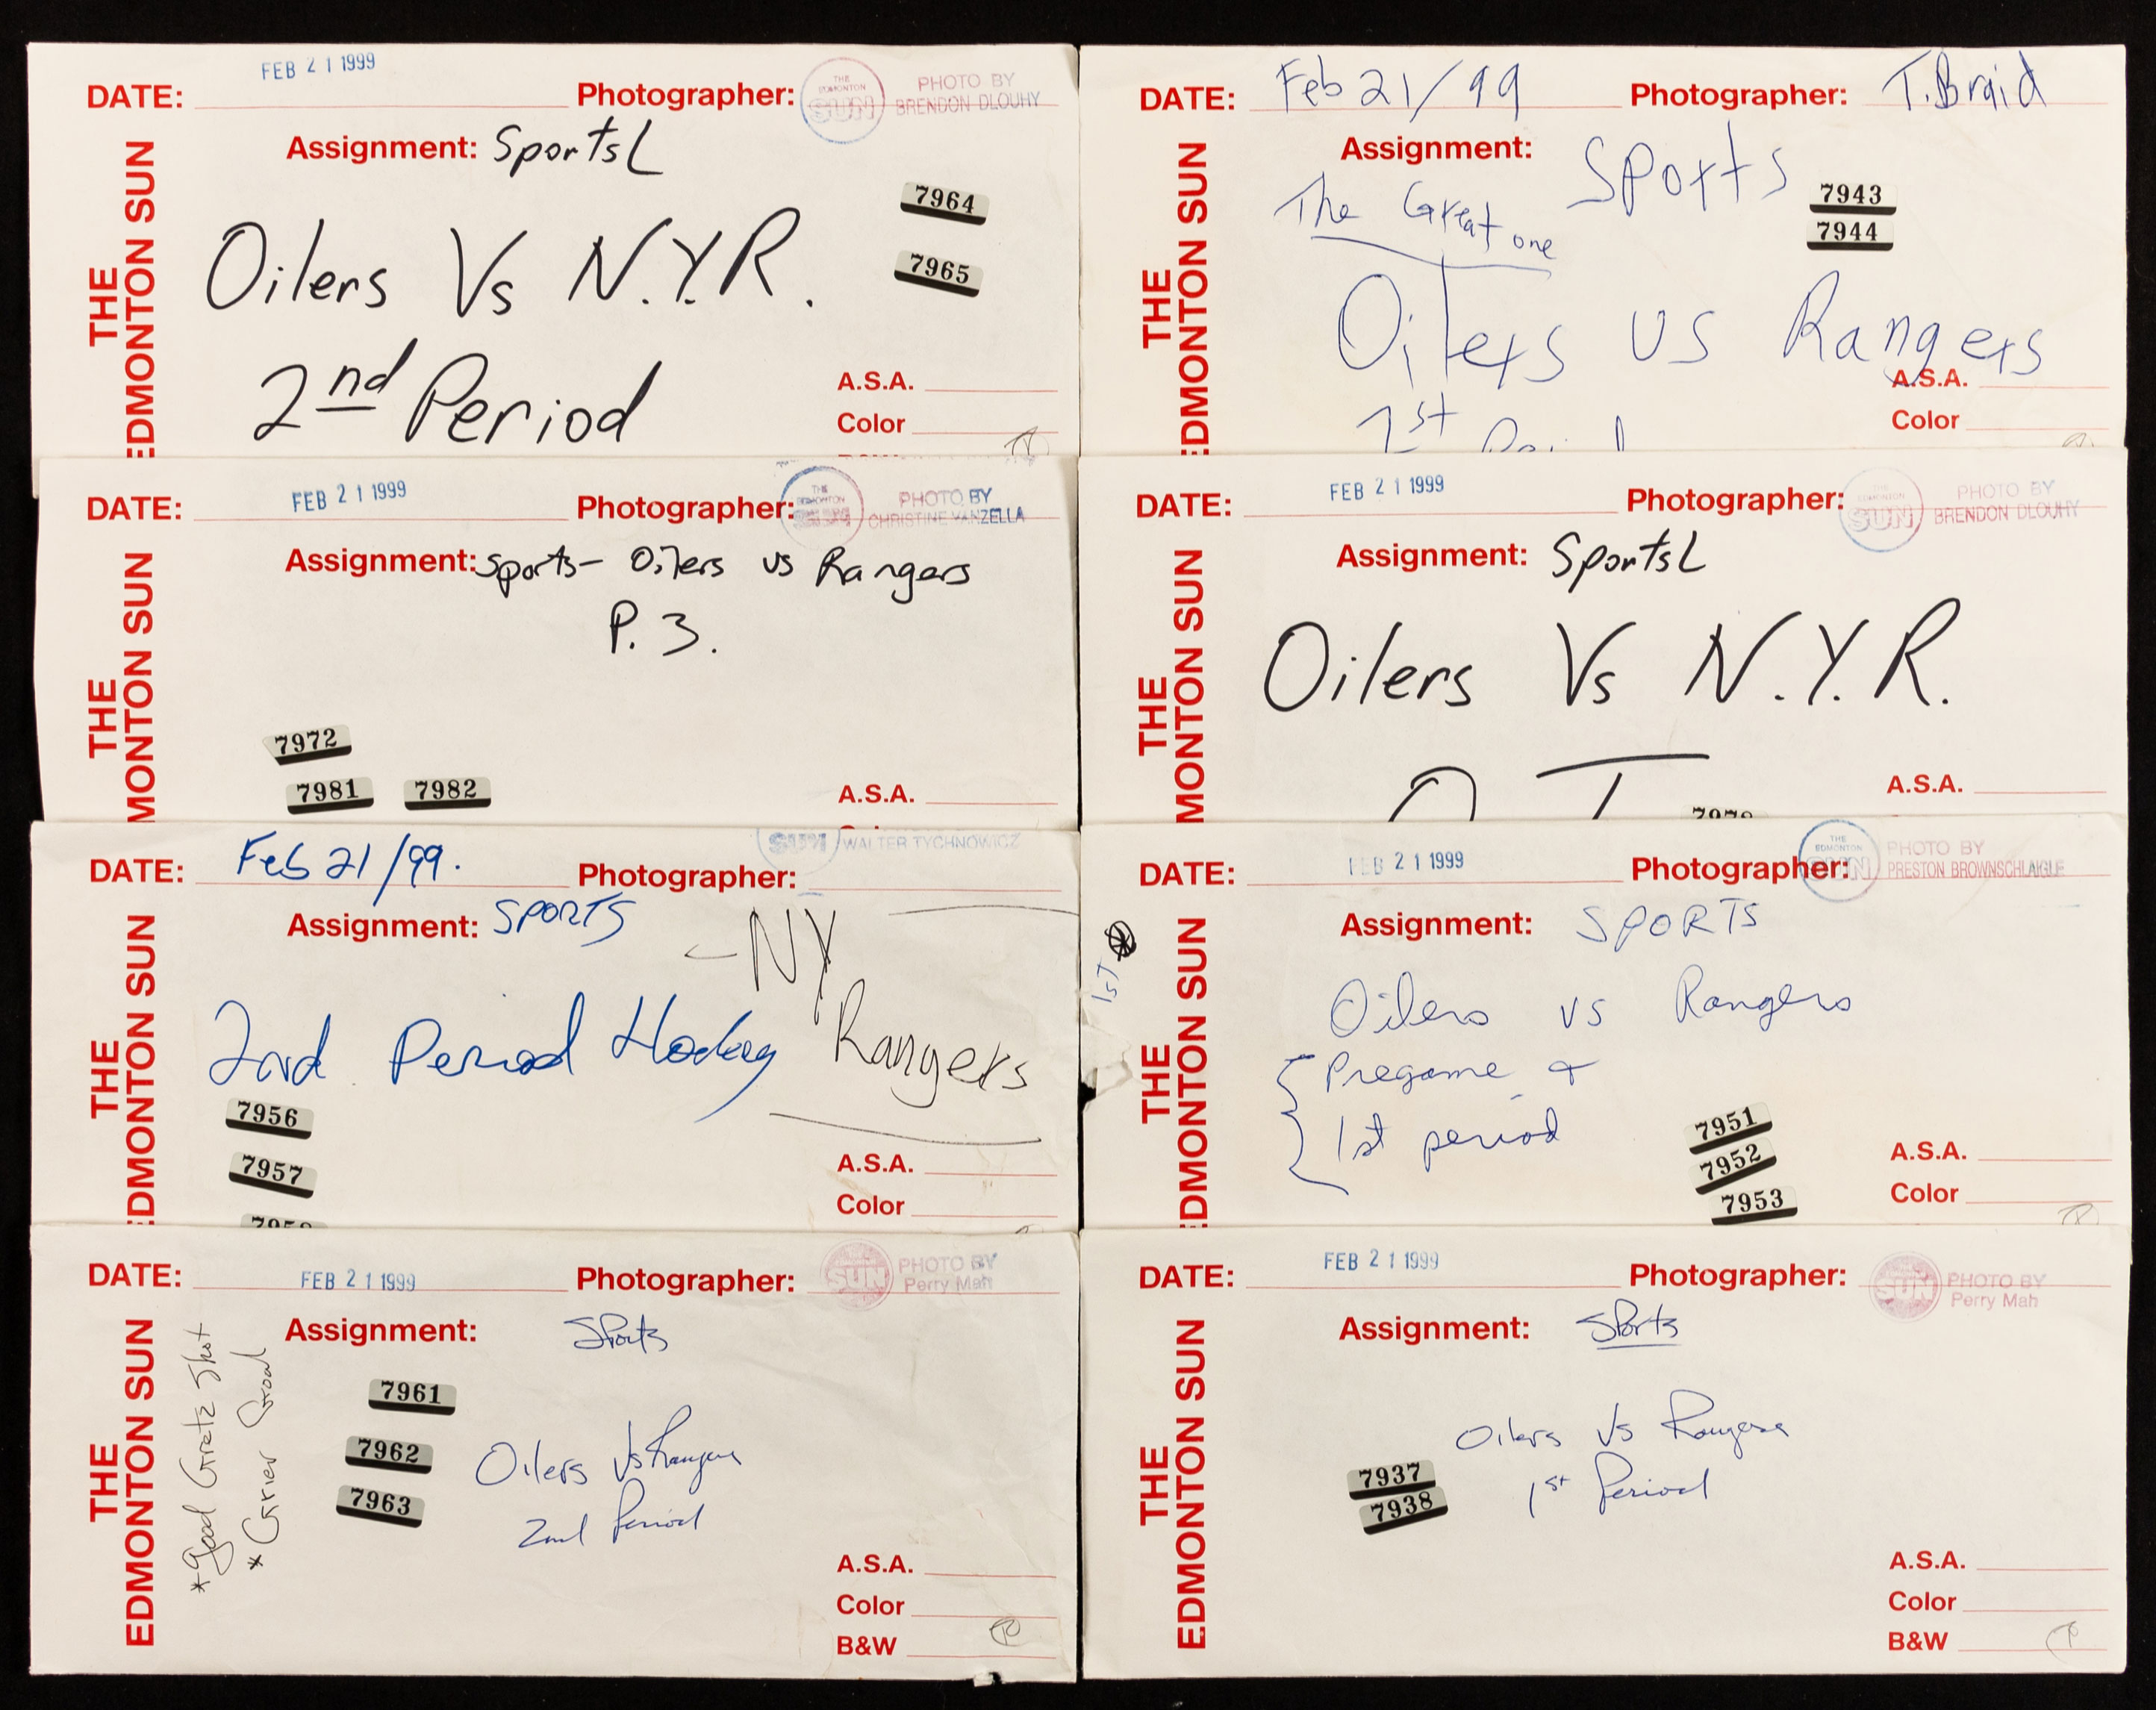 DATE: FEB 21 1999 Photographer: THE EDMONTON SUN PHOTO BY BRENDON DLOUHY
Assignment: SportsL
THE EDMONTON SUN
7964
Oilers Vs N.Y.R.
7965
2nd Period
A.S.A.
Color
DATE: Feb 21/99 Photographer: T. Braid
Assignment: Sports
THE EDMONTON SUN
The Great one
7943
7944
Oilers vs Rangers
1st
A.S.A.
Color
DATE: FEB 21 1999 Photographer: THE EDMONTON SUN PHOTO BY CHRISTINE VANZELLA
Assignment: Sports- Oilers vs Rangers
P. 3.
THE EDMONTON SUN
7972
7981 7982
A.S.A.
DATE: FEB 21 1999 Photographer: THE EDMONTON SUN PHOTO BY BRENDON DLOUHY
Assignment: SportsL
THE EDMONTON SUN
Oilers Vs N.Y.R.
A.S.A.
DATE: Feb 21/99. Photographer: SUN WALTER TYCHNOWICZ
Assignment: SPORTS
THE EDMONTON SUN
- NY Rangers
2nd Period Hockey
7956
7957
A.S.A.
Color
DATE: FEB 21 1999 Photographer: THE EDMONTON SUN PHOTO BY PRESTON BROWNSCHLAIGLE
Assignment: SPORTS
1ST
THE EDMONTON SUN
Oilers vs Rangers
Pregame &
1st period
7951
7952
7953
A.S.A.
Color
DATE: FEB 21 1999 Photographer: SUN PHOTO BY Perry Mah
Assignment: Sports
THE EDMONTON SUN
*Good Gretz Shot
* Grier Goal
7961
7962
7963
Oilers Vs Rangers
2nd Period
A.S.A.
Color
B&W
DATE: FEB 21 1999 Photographer: SUN PHOTO BY Perry Mah
Assignment: Sports
THE EDMONTON SUN
Oilers Vs Rangers
1st Period
7937
7938
A.S.A.
Color
B&W